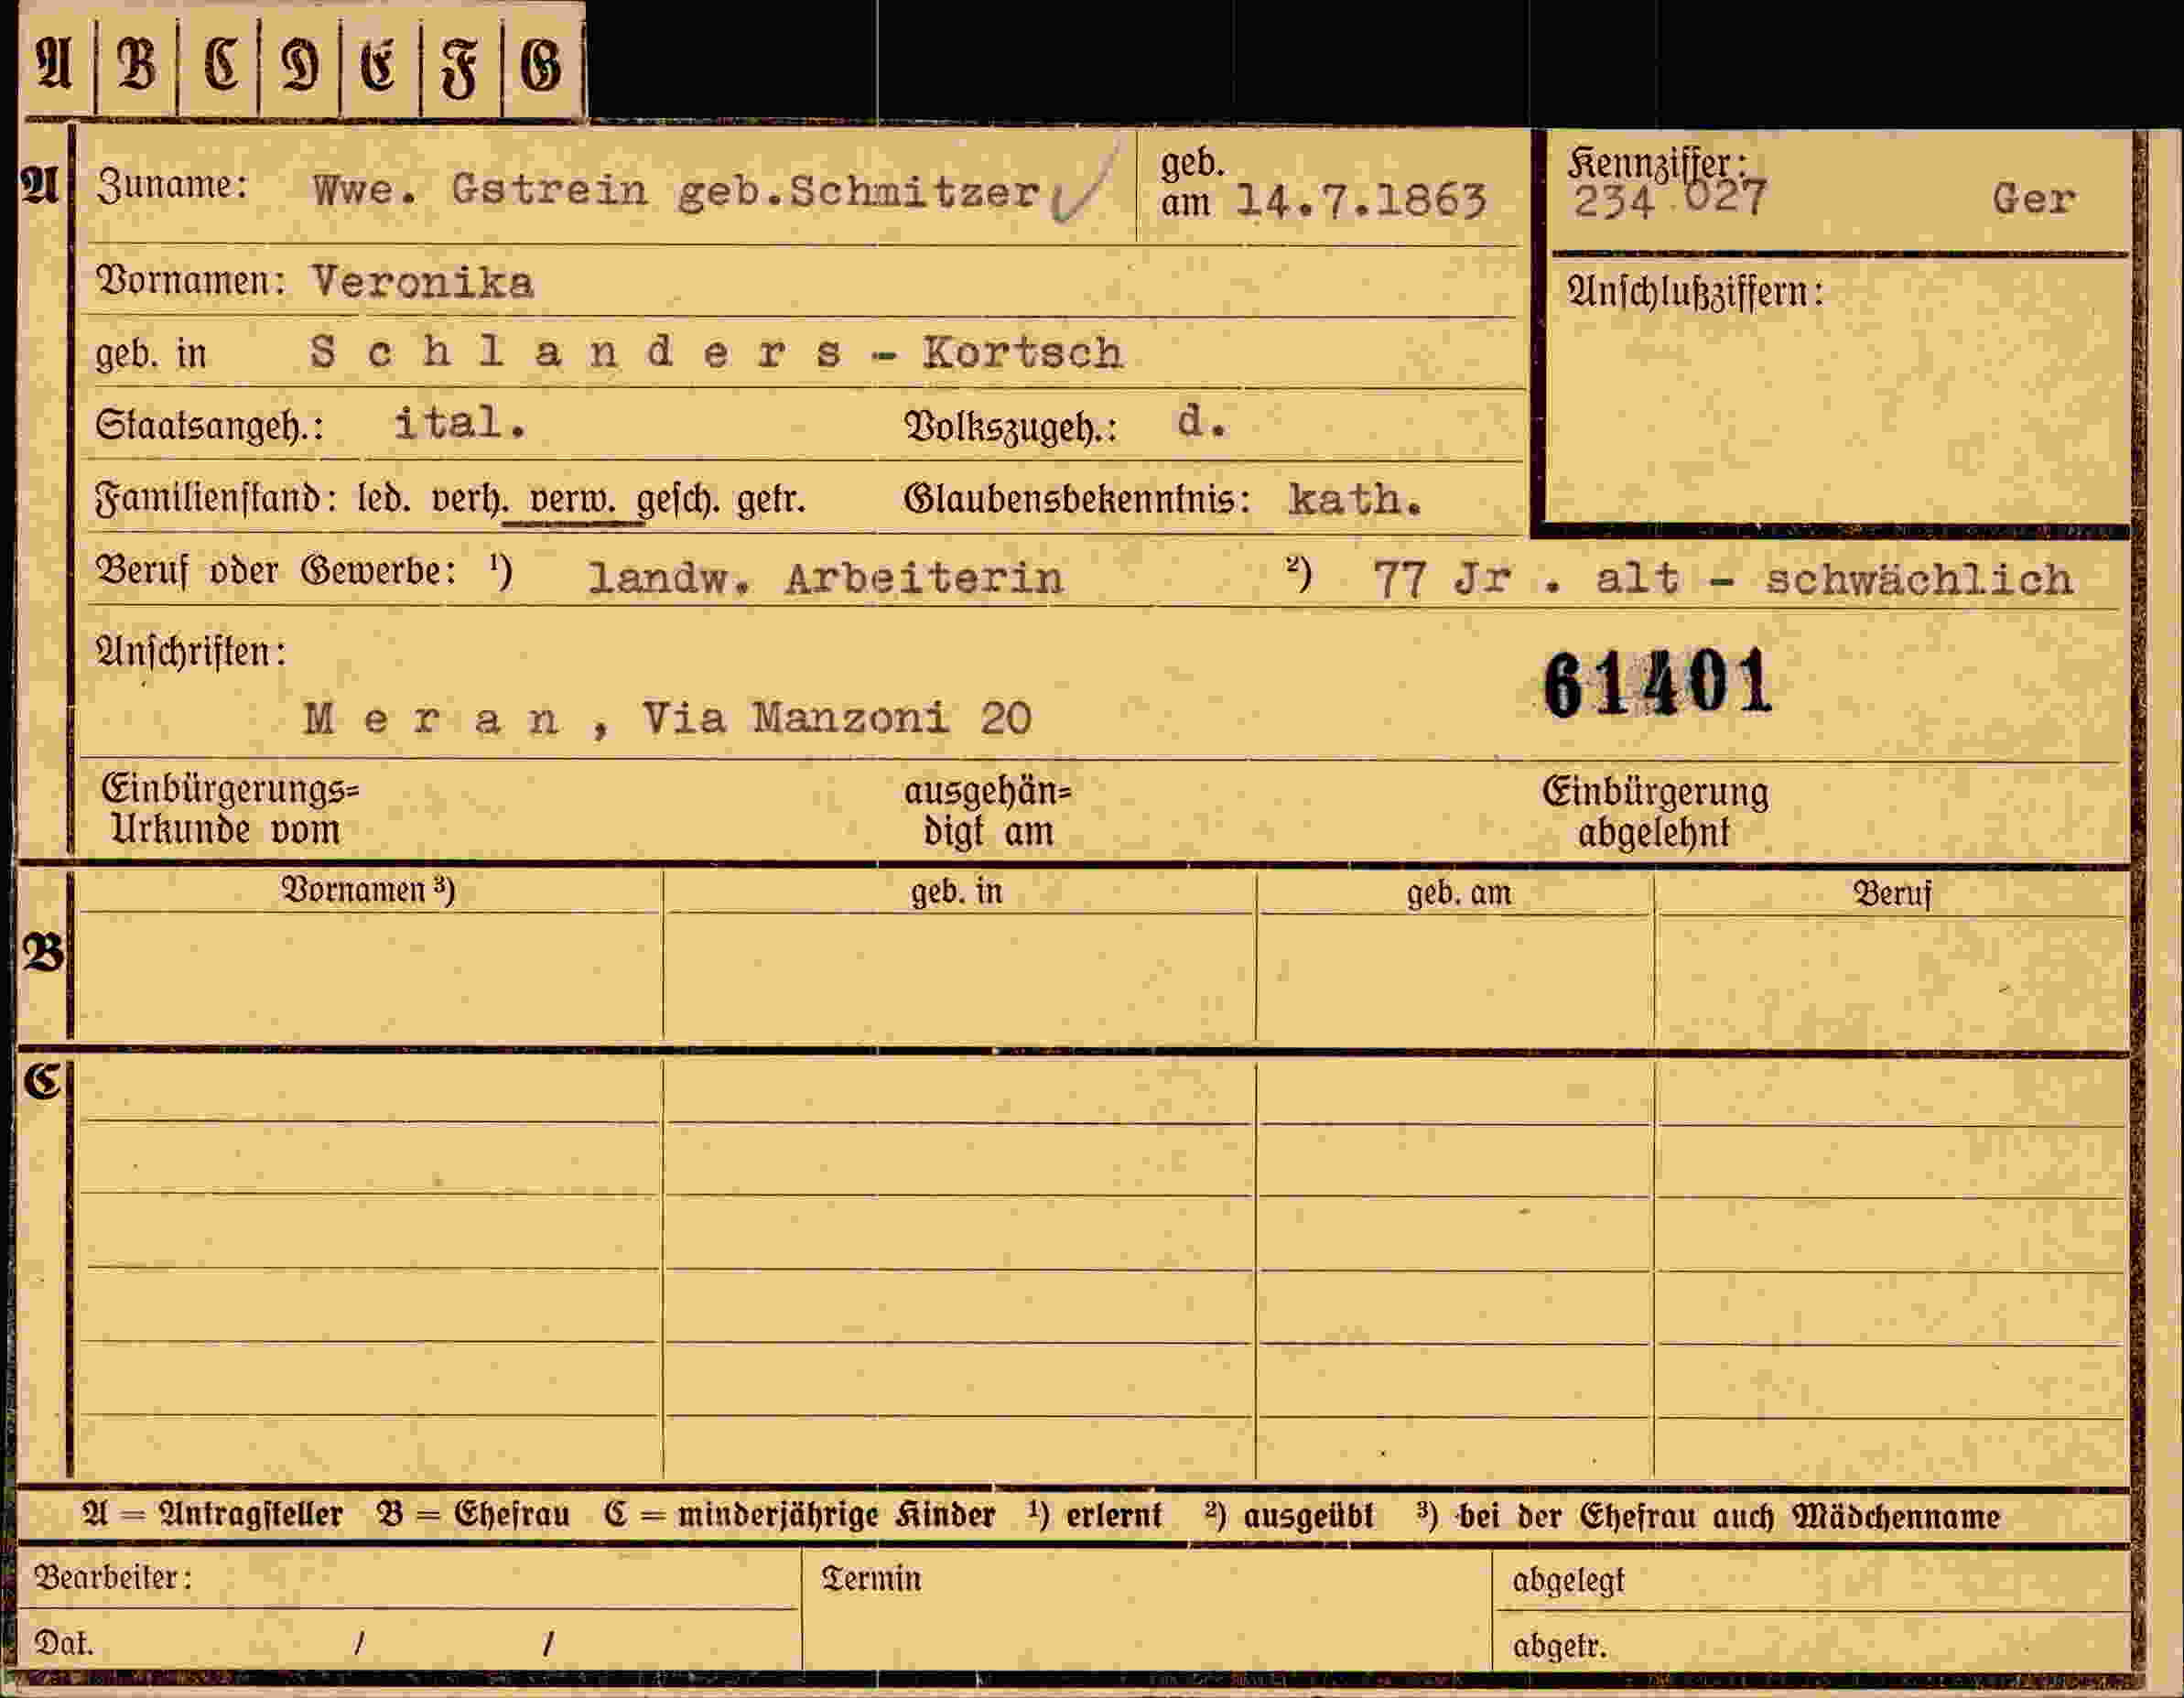 A B C D E F G
A Zuname: Wwe. Gstrein geb.Schmitzer geb. am 14.7.1863 Kennziffer: 234 027 Ger
Vornamen: Veronika Anschlußziffern:
geb. in S c h l a n d e r s - Kortsch
Staatsangeh.: ital. Volkszugeh.: d.
Familienstand: led. verh. verw. gesch. getr. Glaubensbekenntnis: kath.
Beruf oder Gewerbe: ¹) landw. Arbeiterin ²) 77 Jr . alt - schwächlich
Anschriften: 61401
M e r a n , Via Manzoni 20
Einbürgerungs= ausgehän= Einbürgerung
Urkunde vom digt am abgelehnt
Vornamen ³) geb. in geb. am Beruf
B
C
A = Antragsteller B = Ehefrau C = minderjährige Kinder ¹) erlernt ²) ausgeübt ³) bei der Ehefrau auch Mädchenname
Bearbeiter: Termin abgelegt
Dat. / / abgetr.